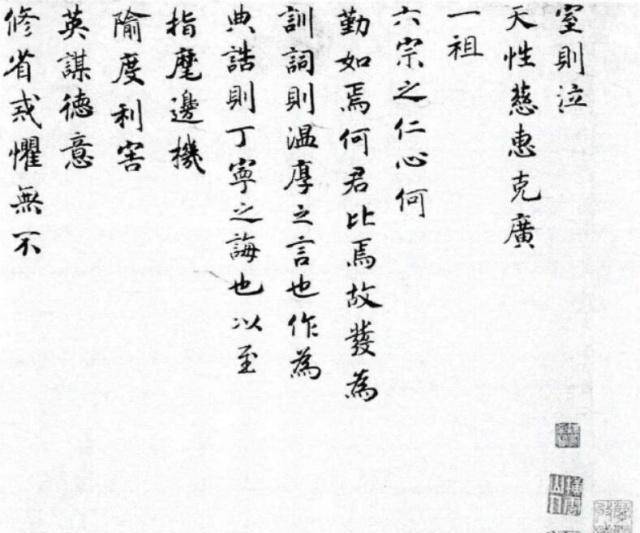 室則泣
天性慈惠克廣
一祖
六宗之仁心何
勤如焉何君比焉故發為
訓詞則温厚之言也作為
典誥則丁寧之誨也以至
指麾邊機
隃度利害
英謀德意
修省或懼無不